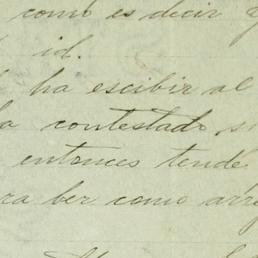 como es decir y
id.
ha escibir al
a contestado, si
entonces tende
ra ber como arre